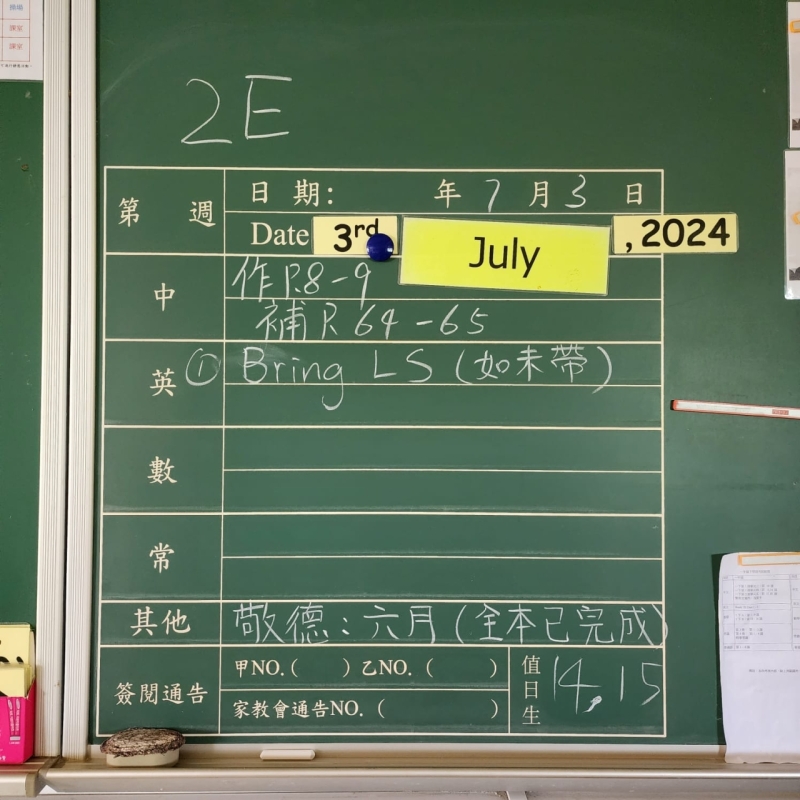 2E
第 週 日 期: 年 7 月 3 日
Date 3rd July , 2024
中 作 P.8-9
補 P. 64-65
英 ① Bring LS (如未帶)
數
常
其他 敬德：六月 (全本已完成)
簽閱通告 甲NO. ( ) 乙NO. ( )
家教會通告NO. ( )
值日生 14, 15
課室
課室